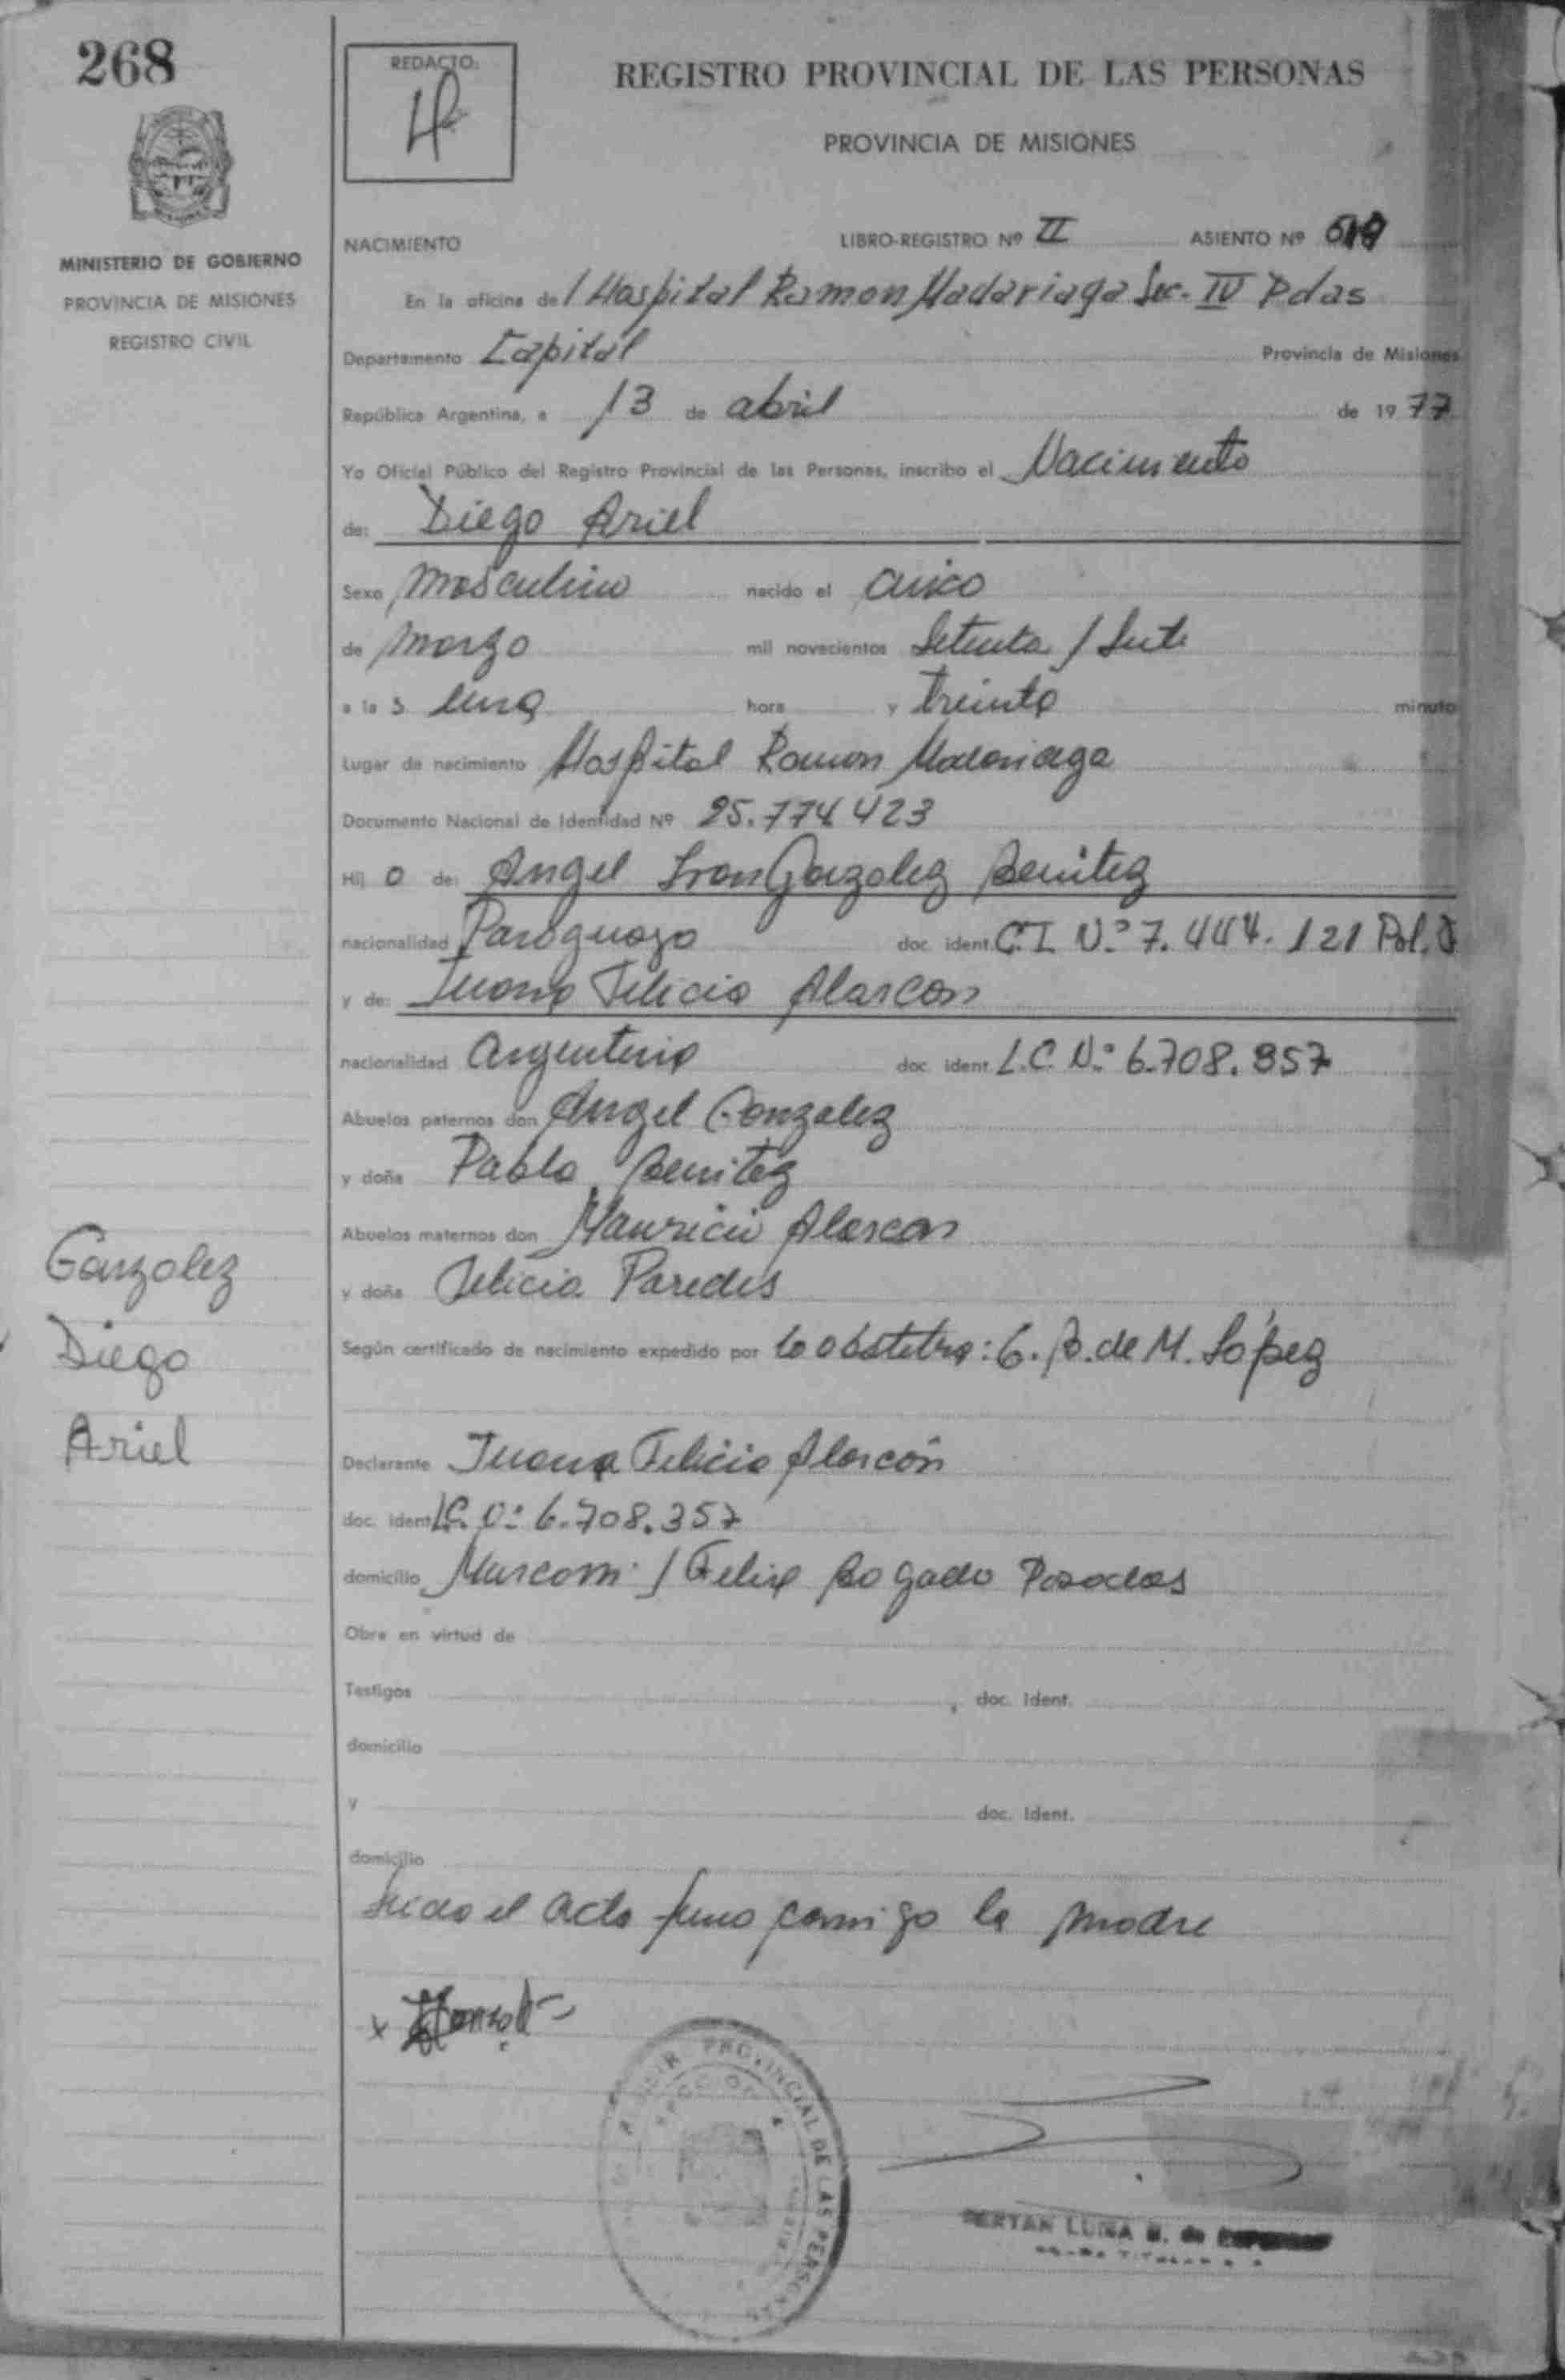 268
MINISTERIO DE GOBIERNO
PROVINCIA DE MISIONES
REGISTRO CIVIL
REDACTO:
REGISTRO PROVINCIAL DE LAS PERSONAS
PROVINCIA DE MISIONES
NACIMIENTO LIBRO-REGISTRO Nº II ASIENTO Nº
En la oficina de l Hospital Ramon Madariaga Sec. IV Pdas
Departamento Capital Provincia de Misiones
República Argentina, a 13 de abril de 1977
Yo Oficial Público del Registro Provincial de las Personas, inscribo el Nacimiento
de: Diego Ariel
Sexo masculino nacido el cinco
de marzo mil novecientos setenta y siete
a la s una hora y treinta minuto
Lugar de nacimiento Hospital Ramon Madariaga
Documento Nacional de Identidad Nº 25.774423
Hij o de: Angel Gonzalez Benitez
nacionalidad Paraguaya doc. ident. C.I Nº 7.444.121 Pol.
y de: Juana Felicia Alarcon
nacionalidad Argentina doc. ident. L.C. Nº 6.708.357
Abuelos paternos don Angel Gonzalez
y doña Pabla Benitez
Abuelos maternos don Mauricio Alarcon
y doña Felicia Paredes
Según certificado de nacimiento expedido por la obstetra: G. B. de M. López
Declarante Juana Felicia Alarcón
doc. ident. L.C. Nº 6.708.357
domicilio Marconi y Felix Bogado Posadas
Obra en virtud de
Testigos , doc. Ident.
domicilio
y doc. Ident.
domicilio
Leida el acta firma conmigo la madre
Gonzalez
Diego
Ariel
x
PROVINCIAL DE LAS PERSONAS
LUISA B. de